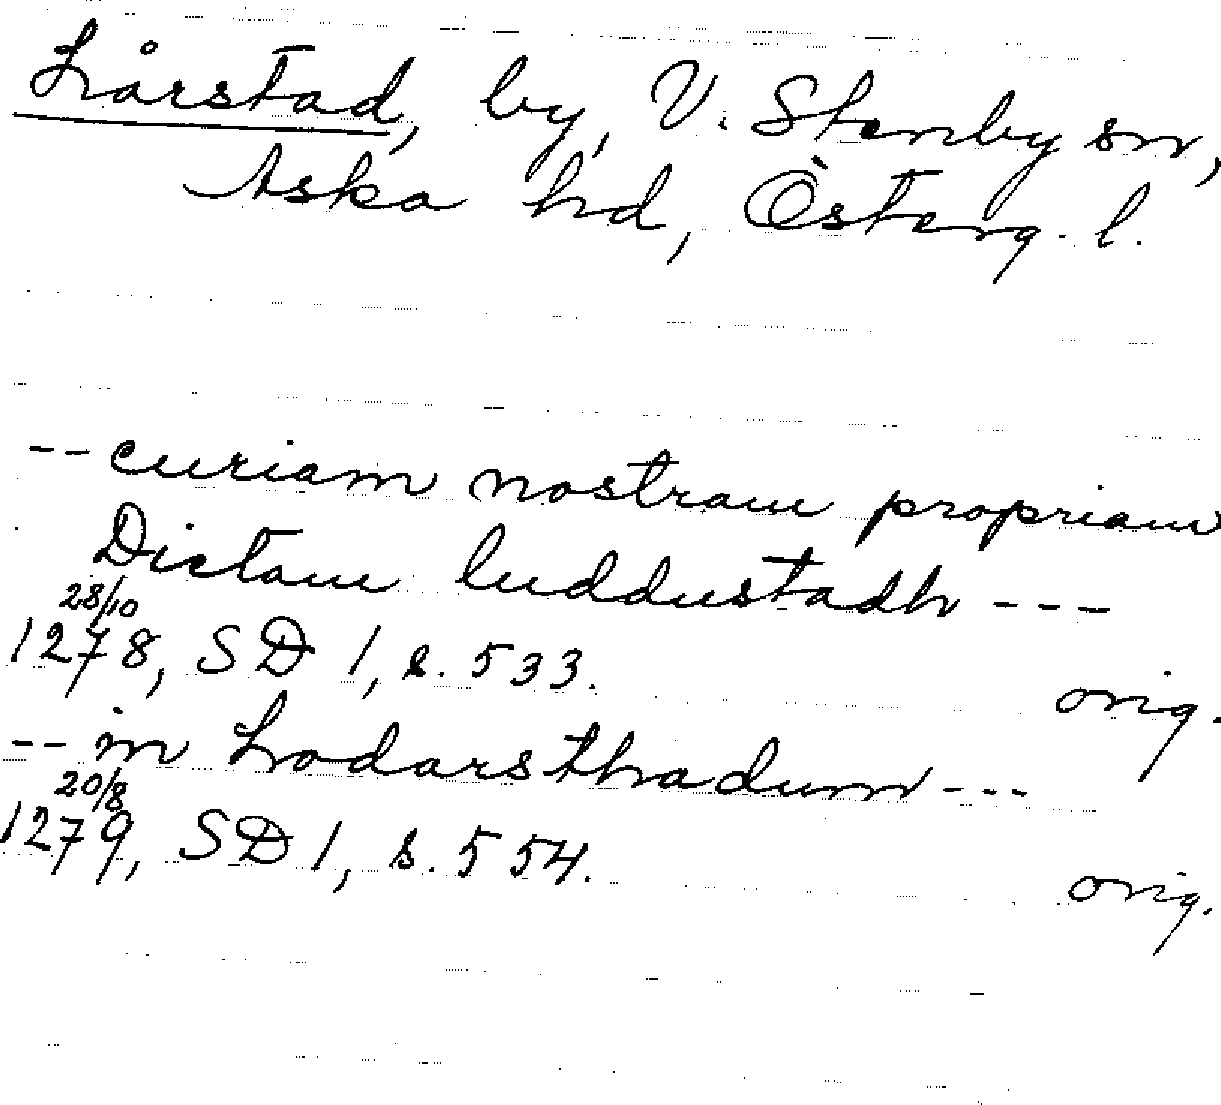 Lårstad, by, V. Stenby sn,
Aska hd, Österg. l.
-- curiam nostram propriam
Dictam luddustadh ---
28/10
1278, SD 1, s. 533. orig.
-- in Lodarsthadum ---
20/8
1279, SD 1, s. 554. orig.